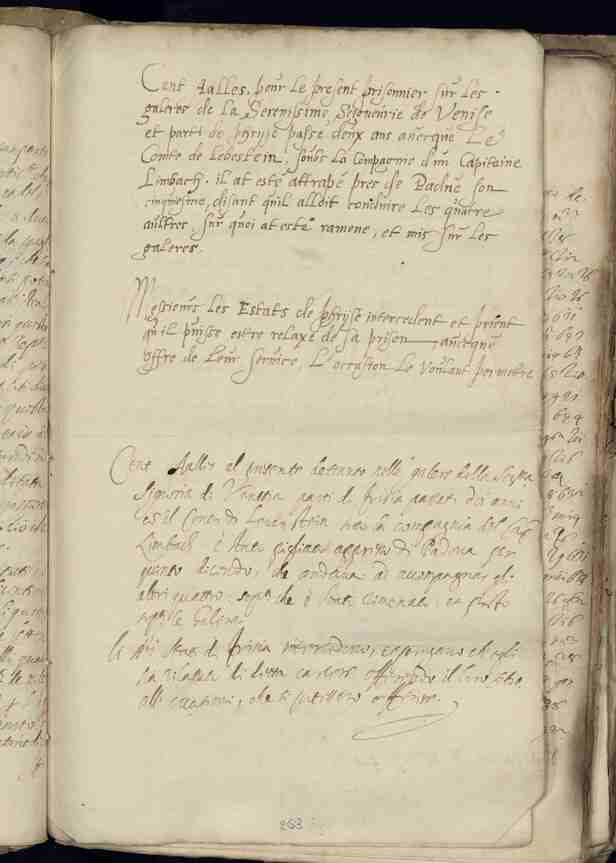 Cent Jalles, pour le present prisonnier sur les
galeres de la Serenissime Seigneurie de Venise
et parti de phryse passé deux ans avecque Le
Comte de Lebestein, soubs la Compagnie d'un Capitaine
Limbach. il at esté attrapé pres de Padue son
cinquiesme, disant qu'il alloit conduire les quatre
aultres, sur quoi at esté ramené, et mis sur les
galeres.
Messieurs les Estats de phryse intercedent et prient
qu'il puisse estre relaxé de sa prison avecque
offre de leur service, L'occasion le voulant permetre
Cent al presente detenuto nelle galere della
Signoria di Venetia parti di frisia passati doi anni
il Conte di Levenstein sotto la compagnia del Cap
Limbach è stato pigliato appresso di Padova per
quanto dicendo, che andava ad accompagnar gli
altri quattro, sopra che è stato
nelle Galere.
li stati di frisia intercedono, che egli
sia rilassato di detta carcere offerendo il loro
alle occasioni, che si
263